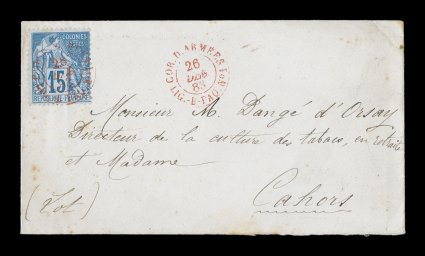 COLONIES
POSTES
15
REPUBLIQUE FRANÇAISE
COR. D. ARMEES
LIG.
26
DEC
83
Monsieur M. Dangé d'Orsay
Directeur de la culture des tabacs, en retraite
et Madame
Cahors
(Lot)